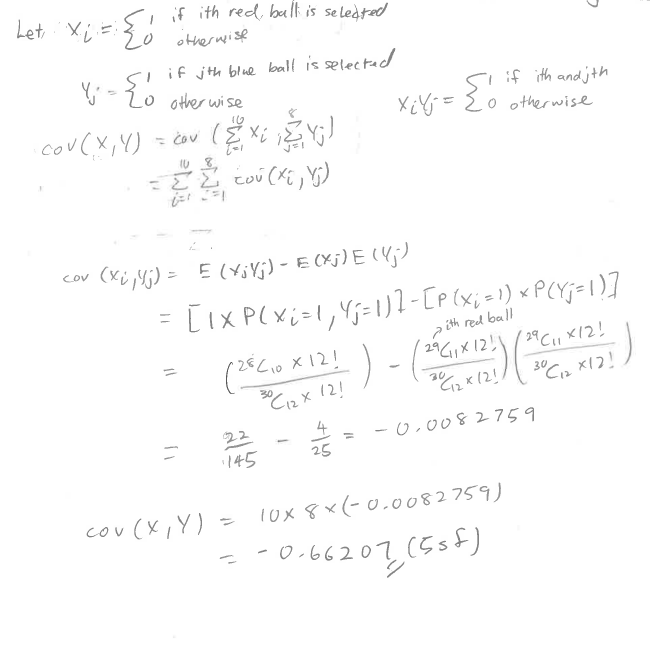 Let, Xi = { 1 if ith red ball is selected
0 otherwise
Yj = { 1 if jth blue ball is selected
0 otherwise
XiYj = { 1 if ith and jth
0 otherwise
cov(X,Y) = cov (10Σi=1 Xi , 8Σj=1 Yj)
= 10Σi=1 8Σi=1 cov(Xi, Yj)
cov (Xi,Yj) = E(XiYj) - E(Xj)E(Yj)
= [1 x P(Xi=1, Yj=1)] - [P(Xi=1) x P(Yj=1)]
ith red ball
= (28C10 x 12! / 30C12 x 12!) - (29C11 x 12! / 30C12 x 12!)(29C11 x 12! / 30C12 x 12!)
= 22/145 - 4/25 = -0.0082759
cov(X,Y) = 10 x 8 x (-0.0082759)
= -0.66207 (5sf)